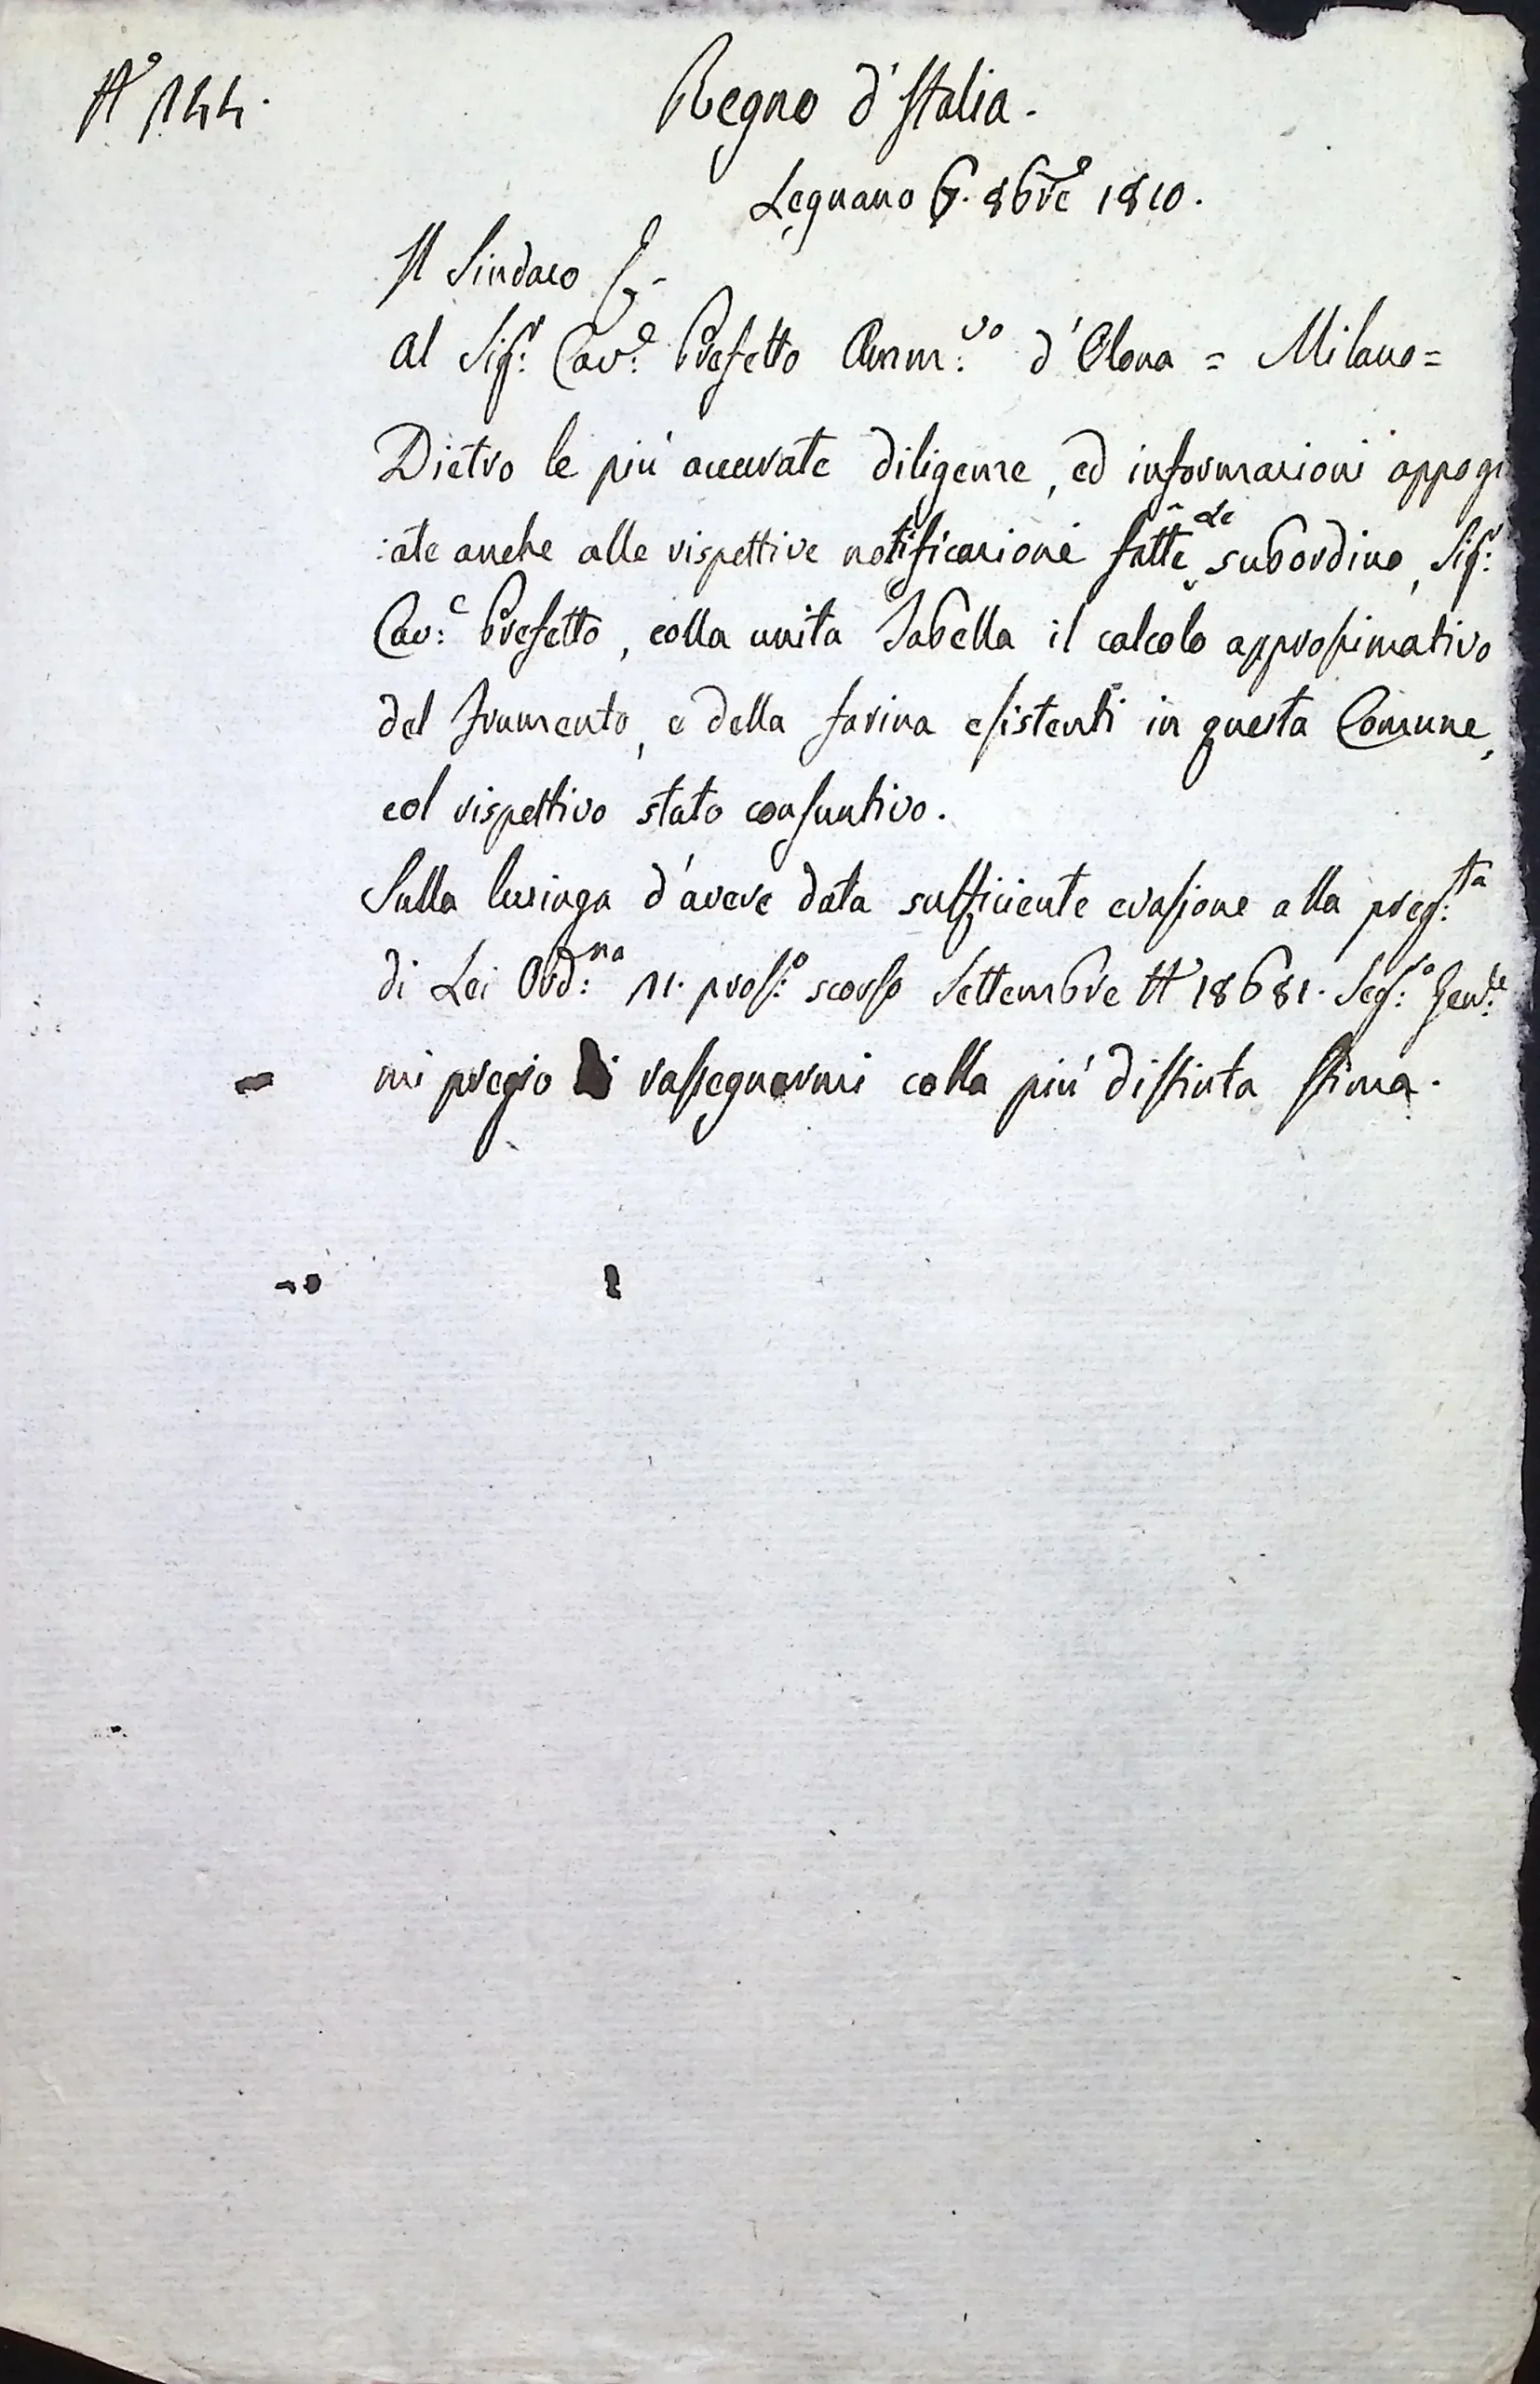 N.° 144.
Regno d'Italia.
Legnano 6. 8bre 1810.
Il Sindaco
Al Sig.r Cav.e Prefetto Amm.vo d'Olona = Milano =
Dietro le più accurate diligenze, ed informazioni appogi
:ate anche alle rispettive notificazione fatte Le subordino, Sig.r
Cav.e Prefetto, colla unita Tabella il calcolo approssimativo
del frumento, e della farina esistenti in questa Comune,
col rispettivo stato consuntivo.
Sulla lusinga d'avere data sufficiente evasione alla preg.ta
di Lei Ord.na 11. pross.o scorso Settembre N.° 18681. Seg.o Gen.le
mi pregio di rassegnarmi colla più distinta stima.